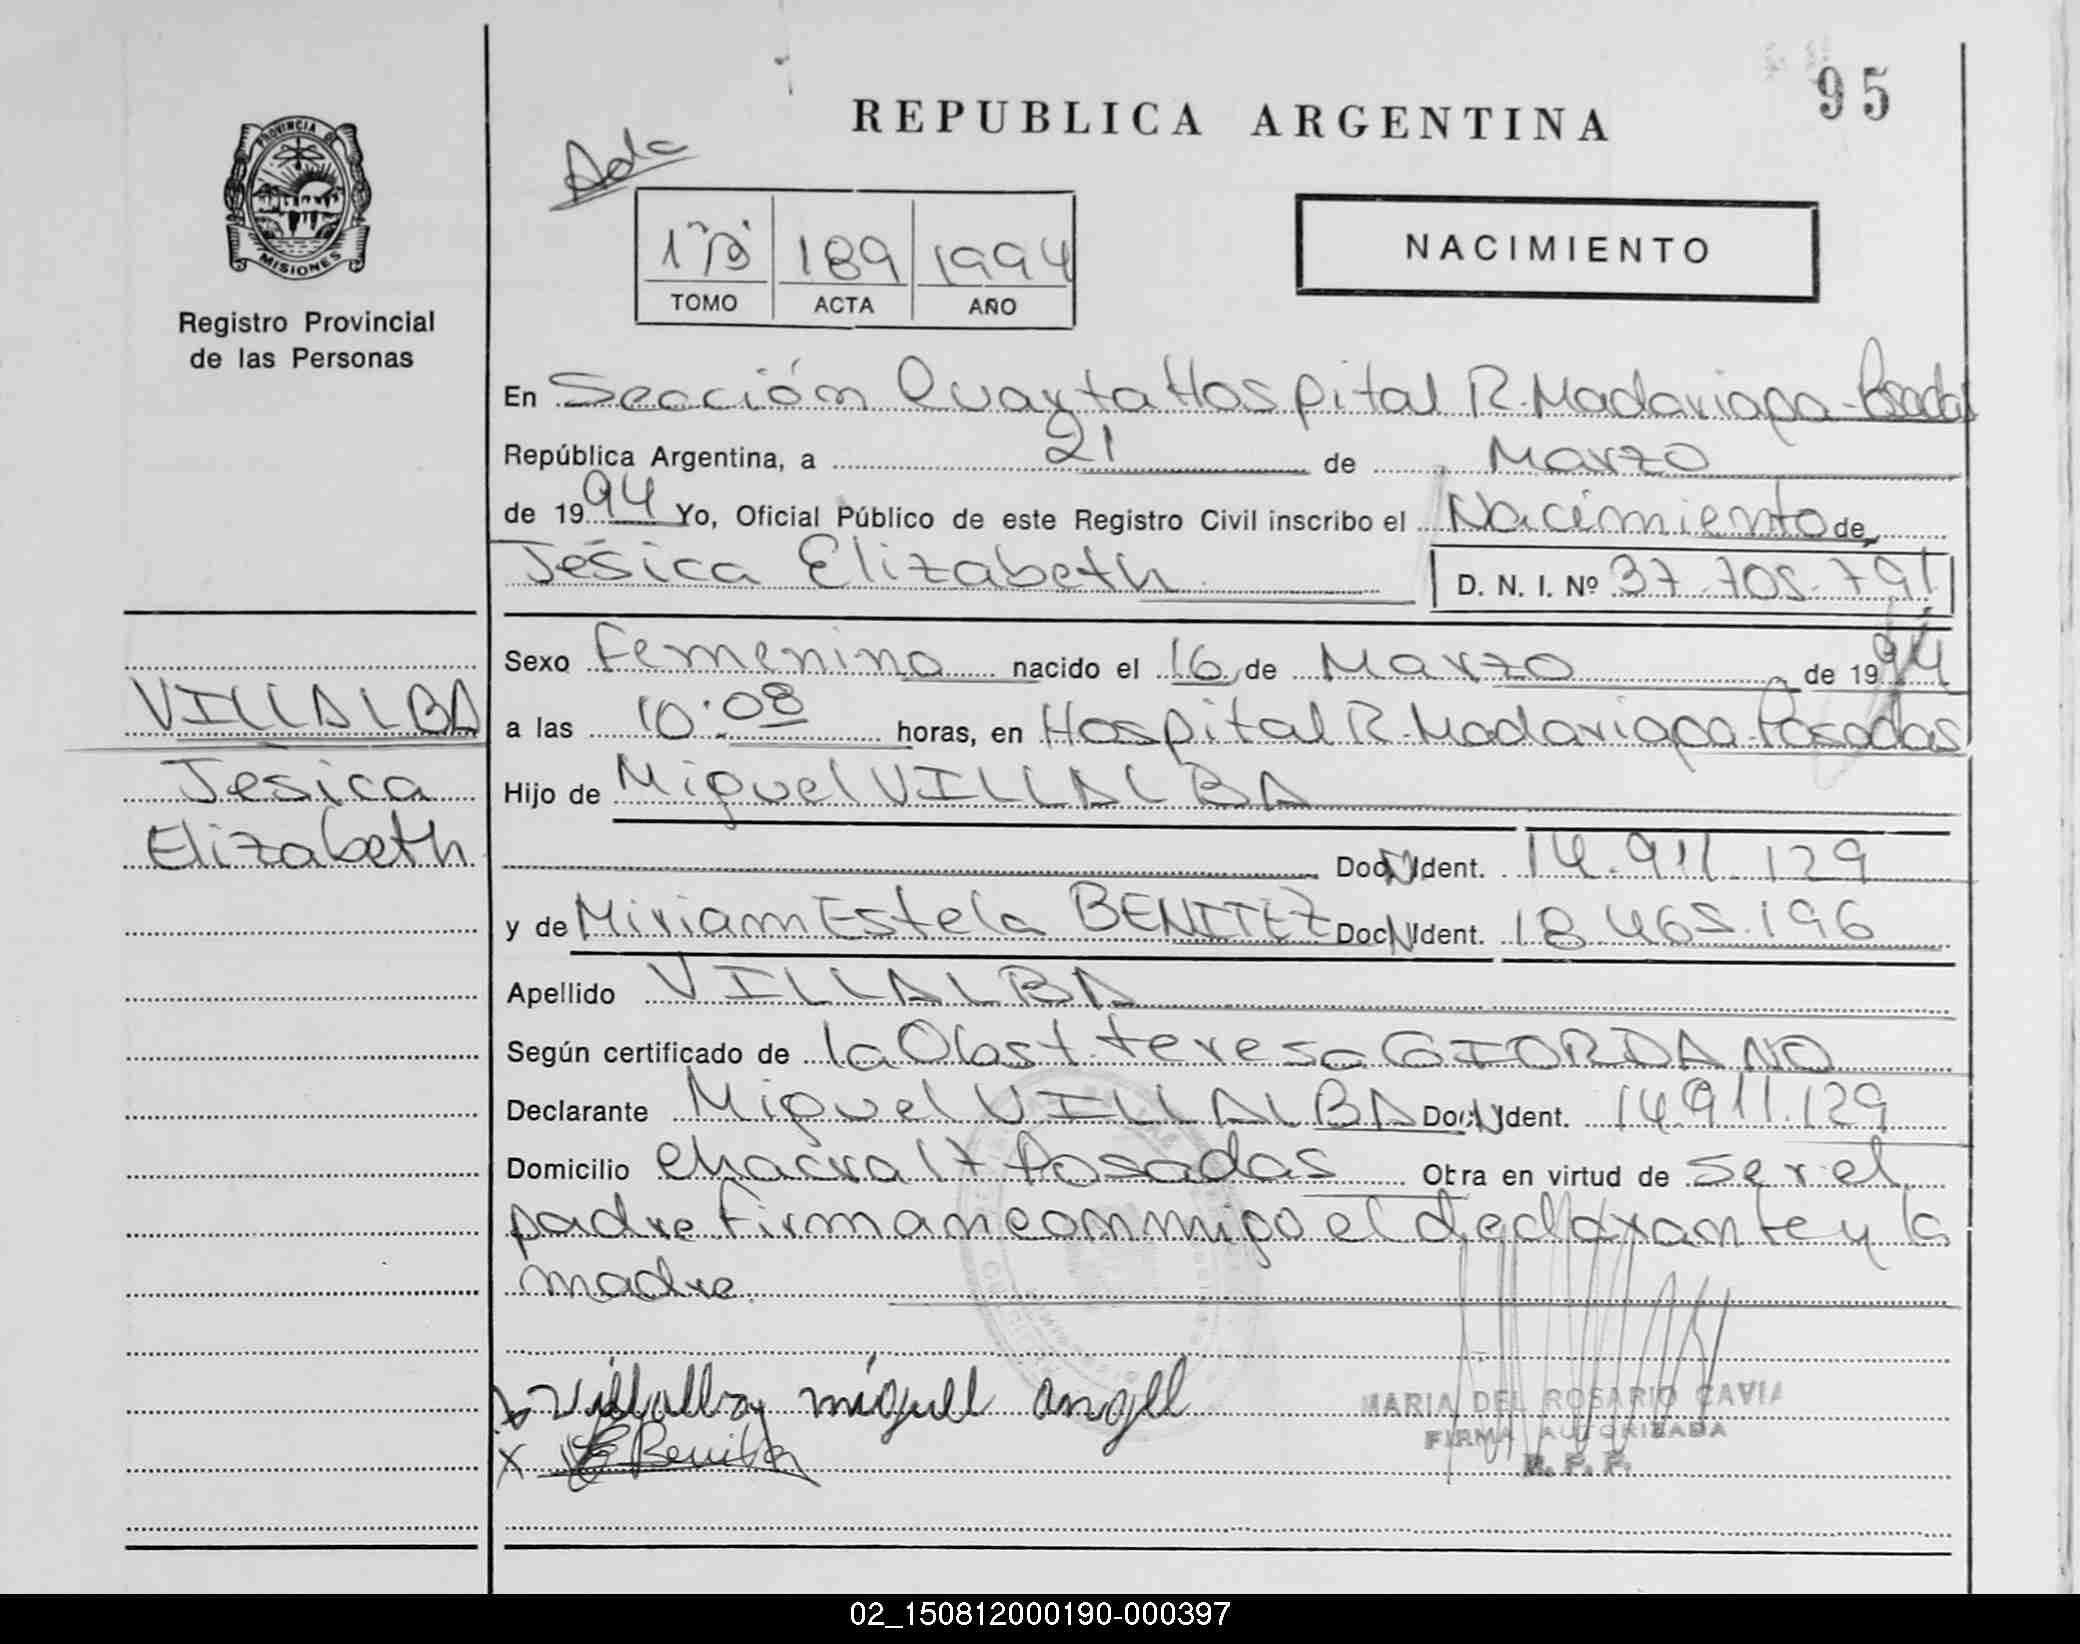 95
REPUBLICA ARGENTINA
PROVINCIA DE
MISIONES
Registro Provincial
de las Personas
189 1994
TOMO ACTA AÑO
NACIMIENTO
En Sección Quarta Hospital R. Madariaga - Posadas
República Argentina, a 21 de Marzo
de 1994 Yo, Oficial Público de este Registro Civil inscribo el Nacimiento de
Jesica Elizabeth D. N. I. Nº 37.705.791
Sexo Femenino nacido el 16 de Marzo de 1994
VILLALBA
a las 10:08 horas, en Hospital R. Madariaga - Posadas
Jesica
Hijo de Miguel VILLALBA
Elizabeth
Doc. N. Ident. 14.911.129
y de Miriam Estela BENITEZ Doc. N. Ident. 18.465.196
Apellido VILLALBA
Según certificado de la Obst. teresa GIORDANO
Declarante Miguel VILLALBA Doc. N. Ident. 14.911.129
Domicilio chacra 17 Posadas Obra en virtud de ser el
padre Firman conmigo el declarante y la
madre.
x Villalba miguel angel
x Benitez
MARIA DEL ROSARIO CAVIA
FIRMA AUTORIZADA
R. P. P.
02_150812000190-000397